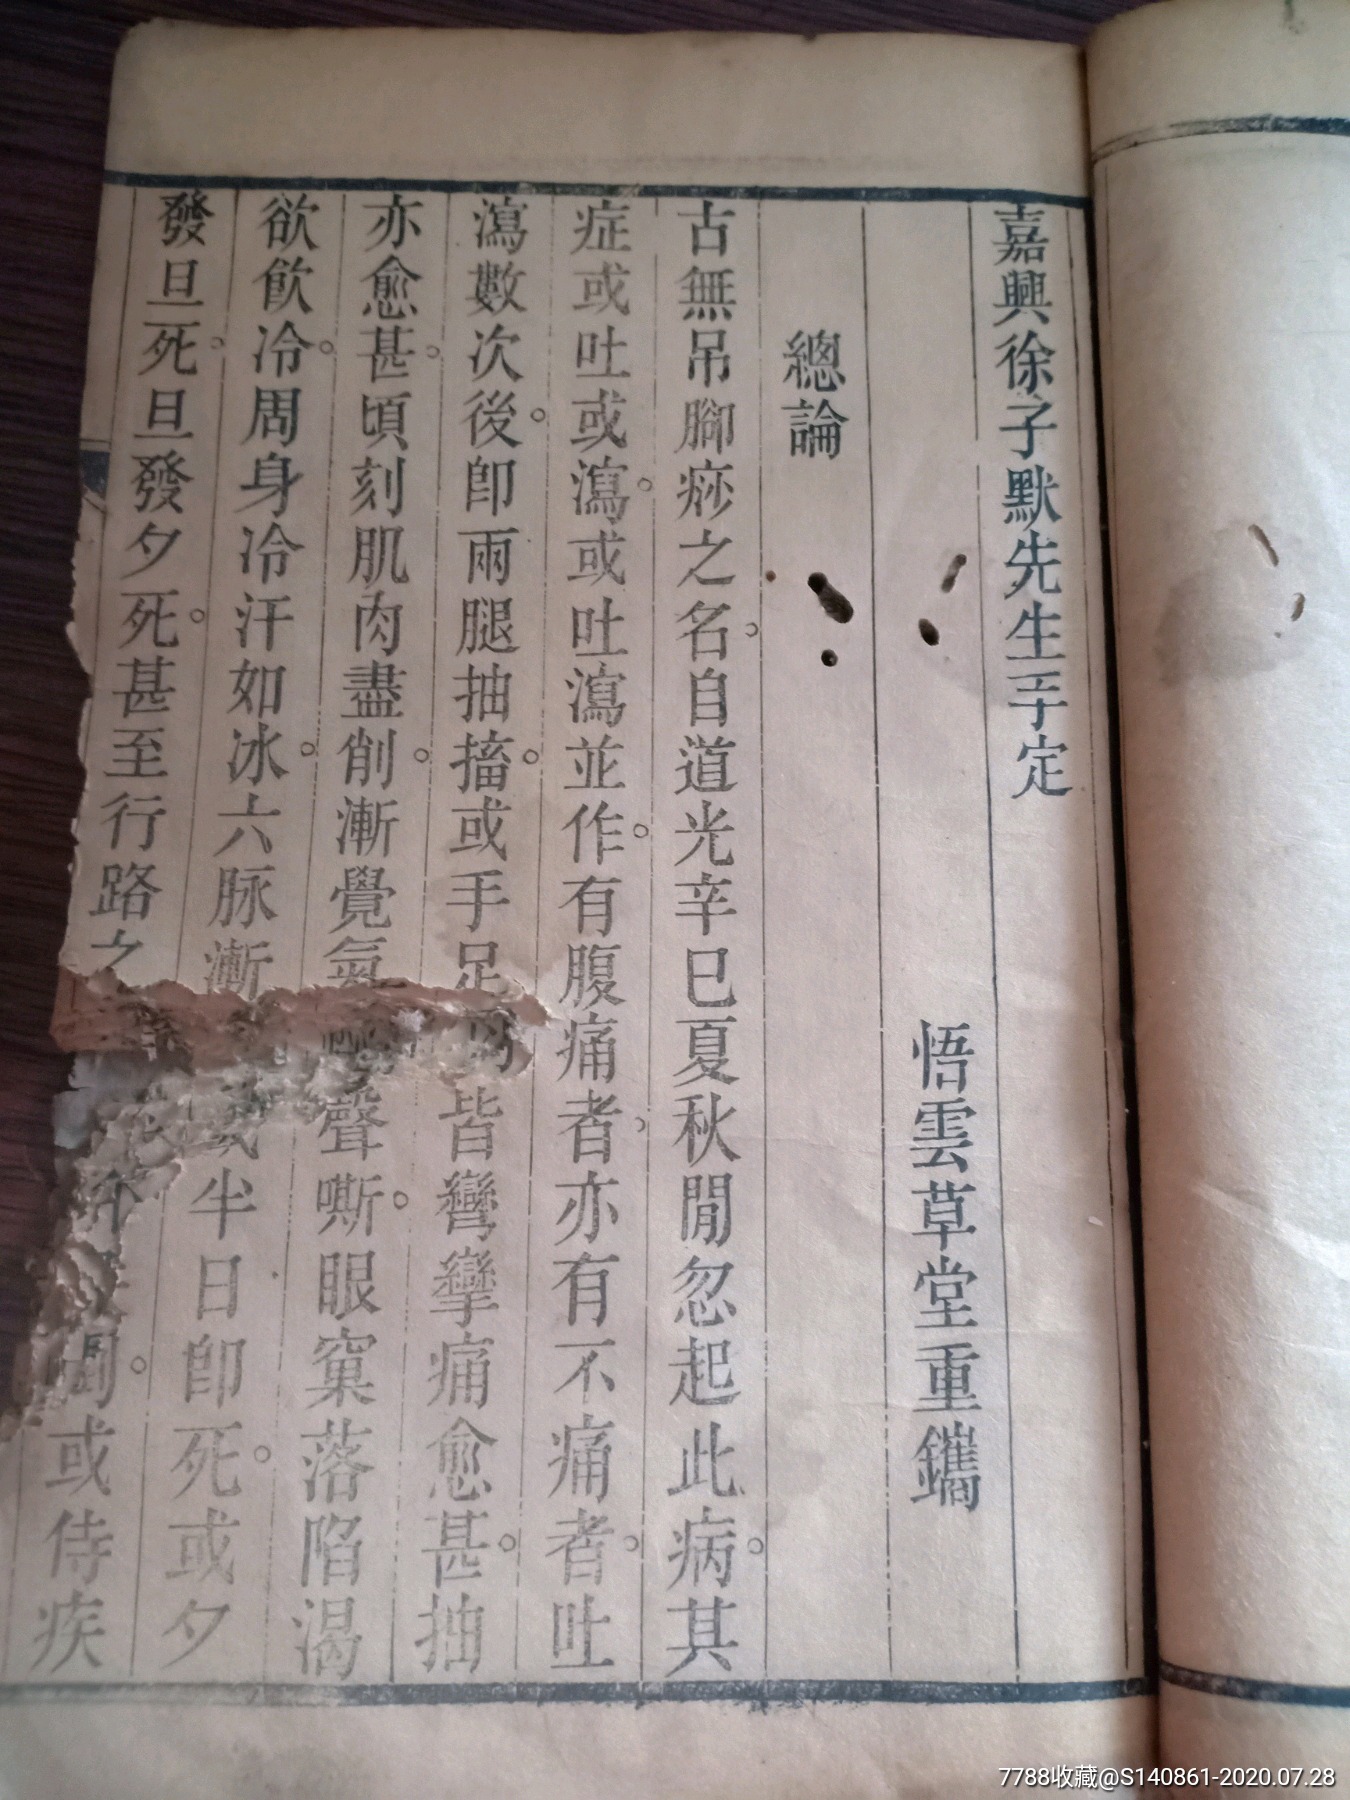 嘉興徐子默先生手定
悟雲草堂重鐫
總論
古無吊腳痧之名。自道光辛巳夏秋閒忽起此病。其
症或吐或瀉。或吐瀉並作。有腹痛者、亦有不痛者。吐
瀉數次後。卽兩腿抽搐。或手足皆彎攣痛愈甚。抽
亦愈甚。頃刻肌肉盡削。漸覺氣聲嘶。眼窠落陷渴
欲飲冷。周身冷汗如冰。六脉漸半日卽死。或夕
發旦死。旦發夕死。甚至行路之。或侍疾
7788收藏@S140861-2020.07.28